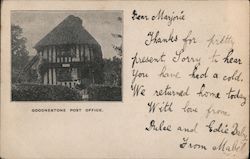 Dear Marjorie
Thanks for pretty
present. Sorry to hear
You have had a cold.
We returned home today
With love from
Dulce and Edie
From Mabel
GOODNESTONE POST OFFICE.